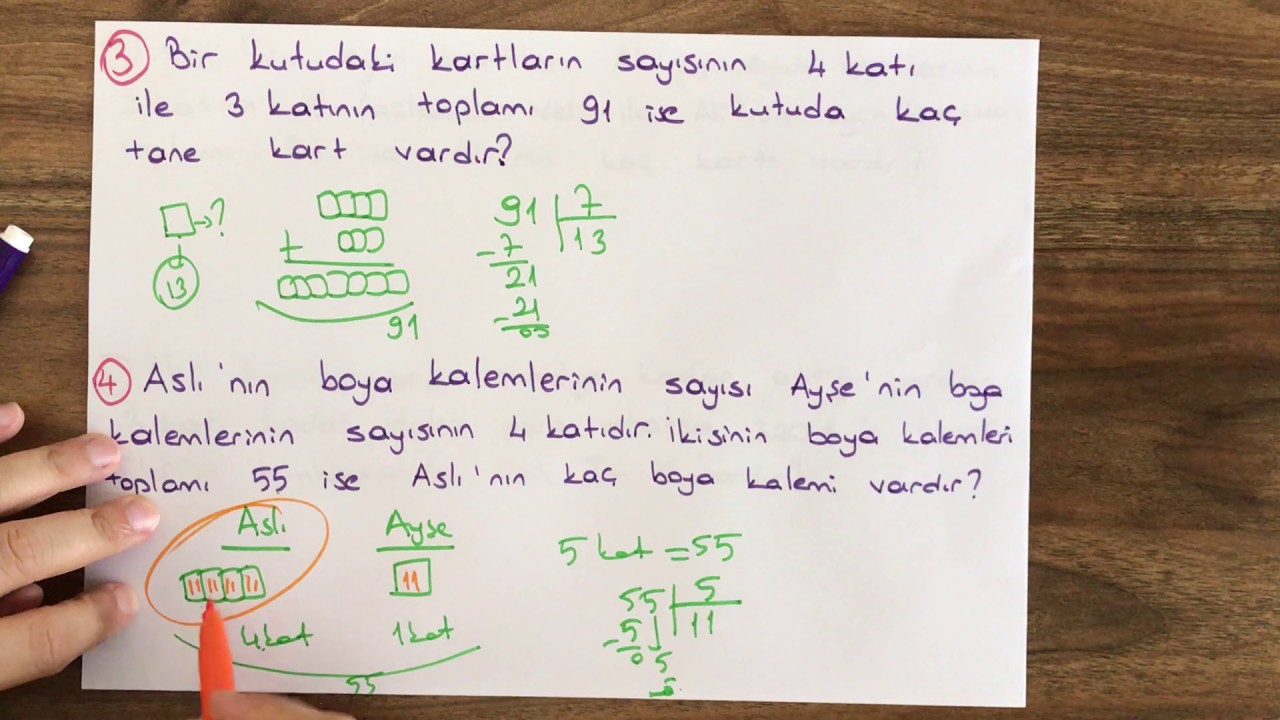 3 Bir kutudaki kartların sayısının 4 katı
ile 3 katının toplamı 91 ise kutuda kaç
tane kart vardır?
□→?
13
+
91
91 7
-7 13
21
-21
00
4 Aslı'nın boya kalemlerinin sayısı Ayşe'nin boya
kalemlerinin sayısının 4 katıdır. ikisinin boya kalemleri
toplamı 55 ise Aslı'nın kaç boya kalemi vardır?
Aslı Ayşe
11 11 11 11 11
4 kat 1 kat
55
5 kat = 55
55 5
-5 11
0 5